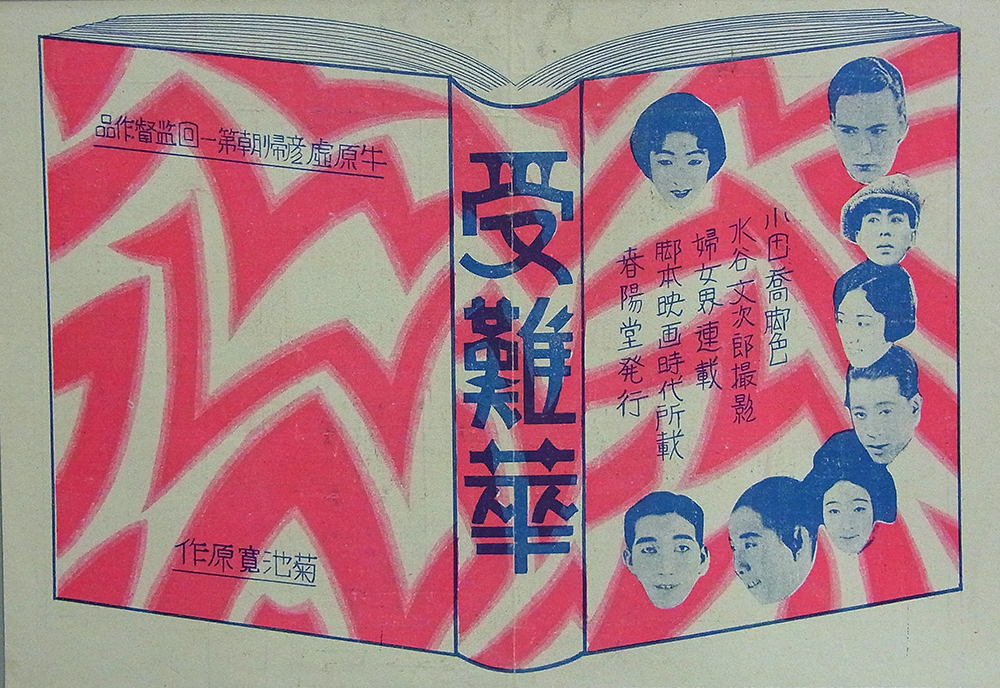 受難華
小田喬脚色
水谷文次郎撮影
婦女界連載
脚本映画時代所載
春陽堂発行
牛原虚彦帰朝第一回監督作品
菊池寛原作